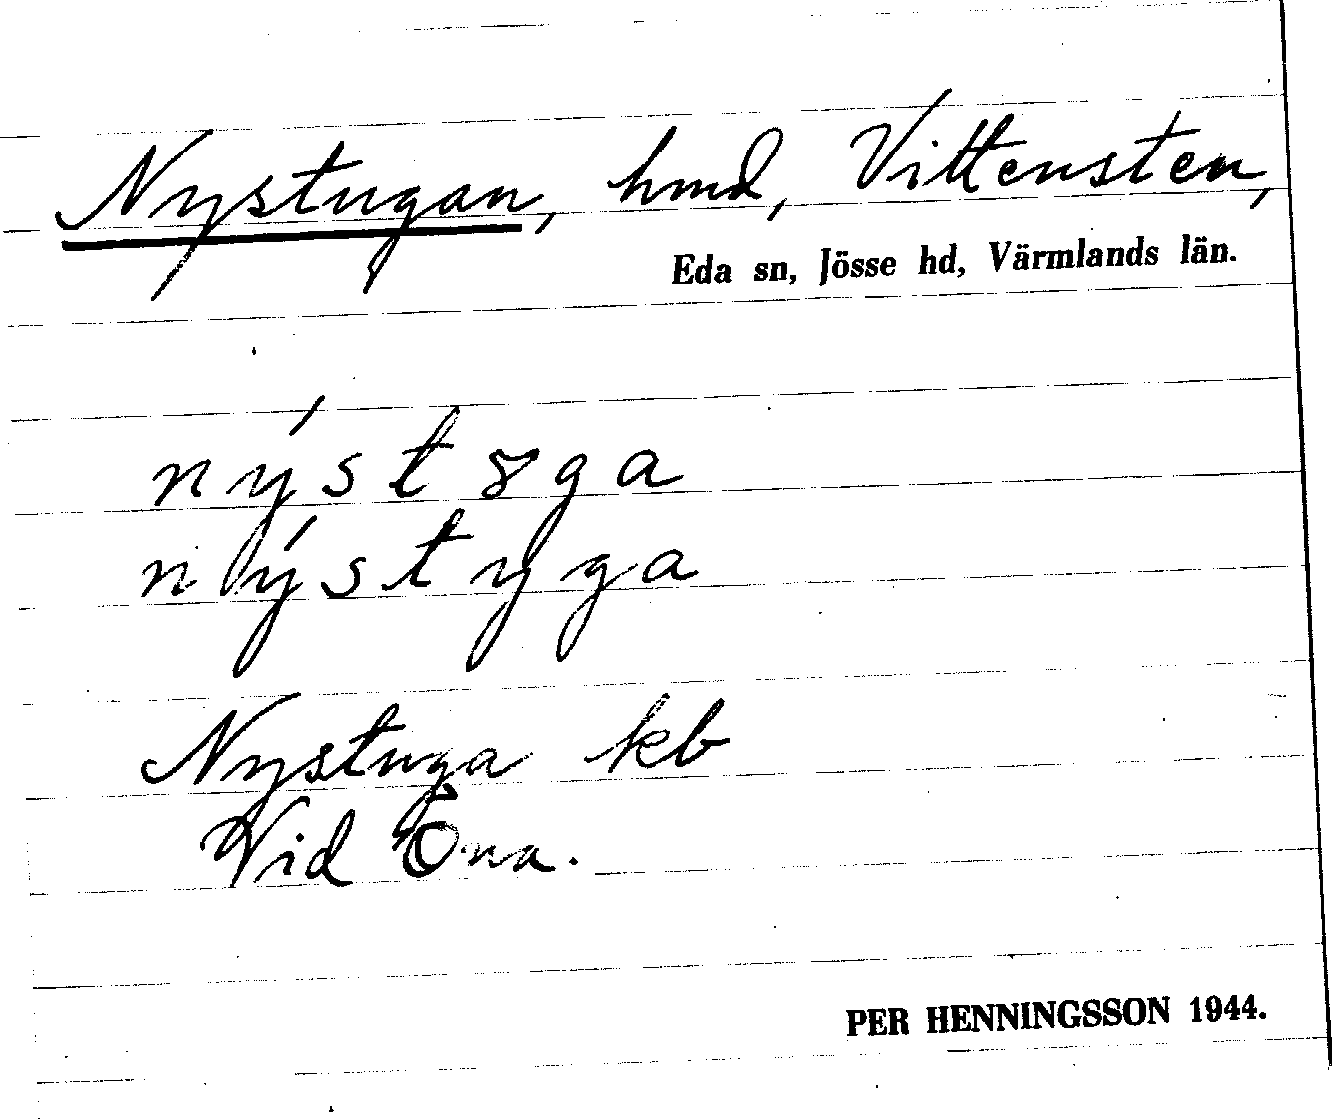 Nystugan, hmd, Vittensten,
Eda sn, Jösse hd, Värmlands län.
nýstȣga
nýstyga
Nystuga kb
Vid Öna.
PER HENNINGSSON 1944.